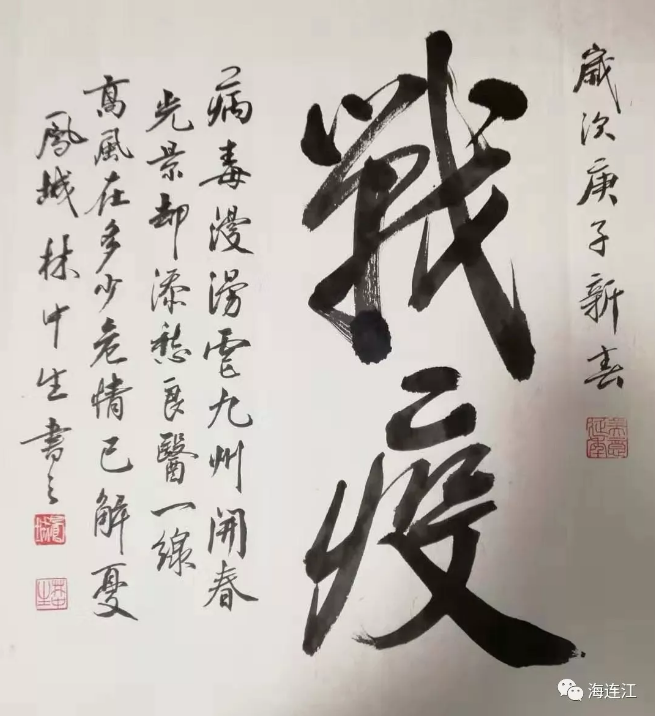 歲次庚子新春
戰疫
病毒漫漫虐九州開春
光景却添愁良醫一線
高風在多少危情已解憂
鳳城林中生書之
海连江